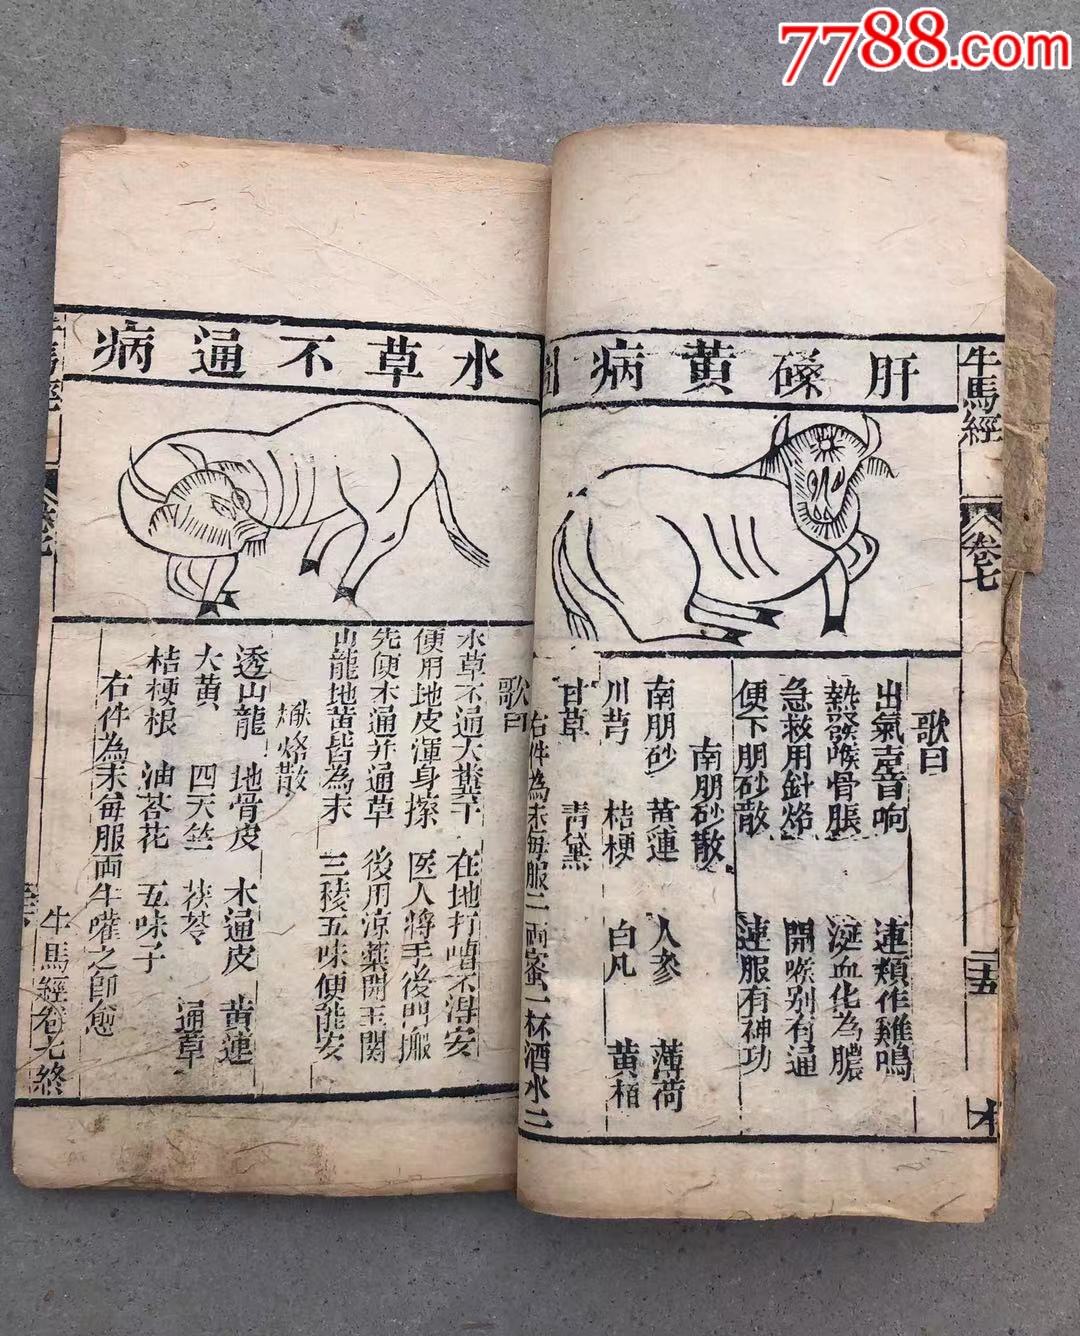 7788.com
牛馬經
卷七
二五
肝磉黃病
歌曰
出氣声音响 連類作雞鳴
熱發喉骨脹 涎血化為膿
急救用針烙 開喉别有通
便下朋砂散 連服有神功
南朋砂散
南朋砂 黃連 人参 薄荷
川芎 桔梗 白凡 黃栢
甘草 青黛
右件為末每服二兩蜜一杯酒水二
水草不通病
歌曰
水草不通大糞干 在地打嘈不得安
便用地皮渾身擦 医人將手後門搬
先使木通并通草 後用凉藥開玉関
山龍地黃皆為末 三稜五味便能安
烙散
透山龍 地骨皮 木通皮 黃連
大黃 四天竺 茯苓 通草
桔梗根 油苔花 五味子
右件為末每服両牛嚾之即愈
牛馬經卷七終